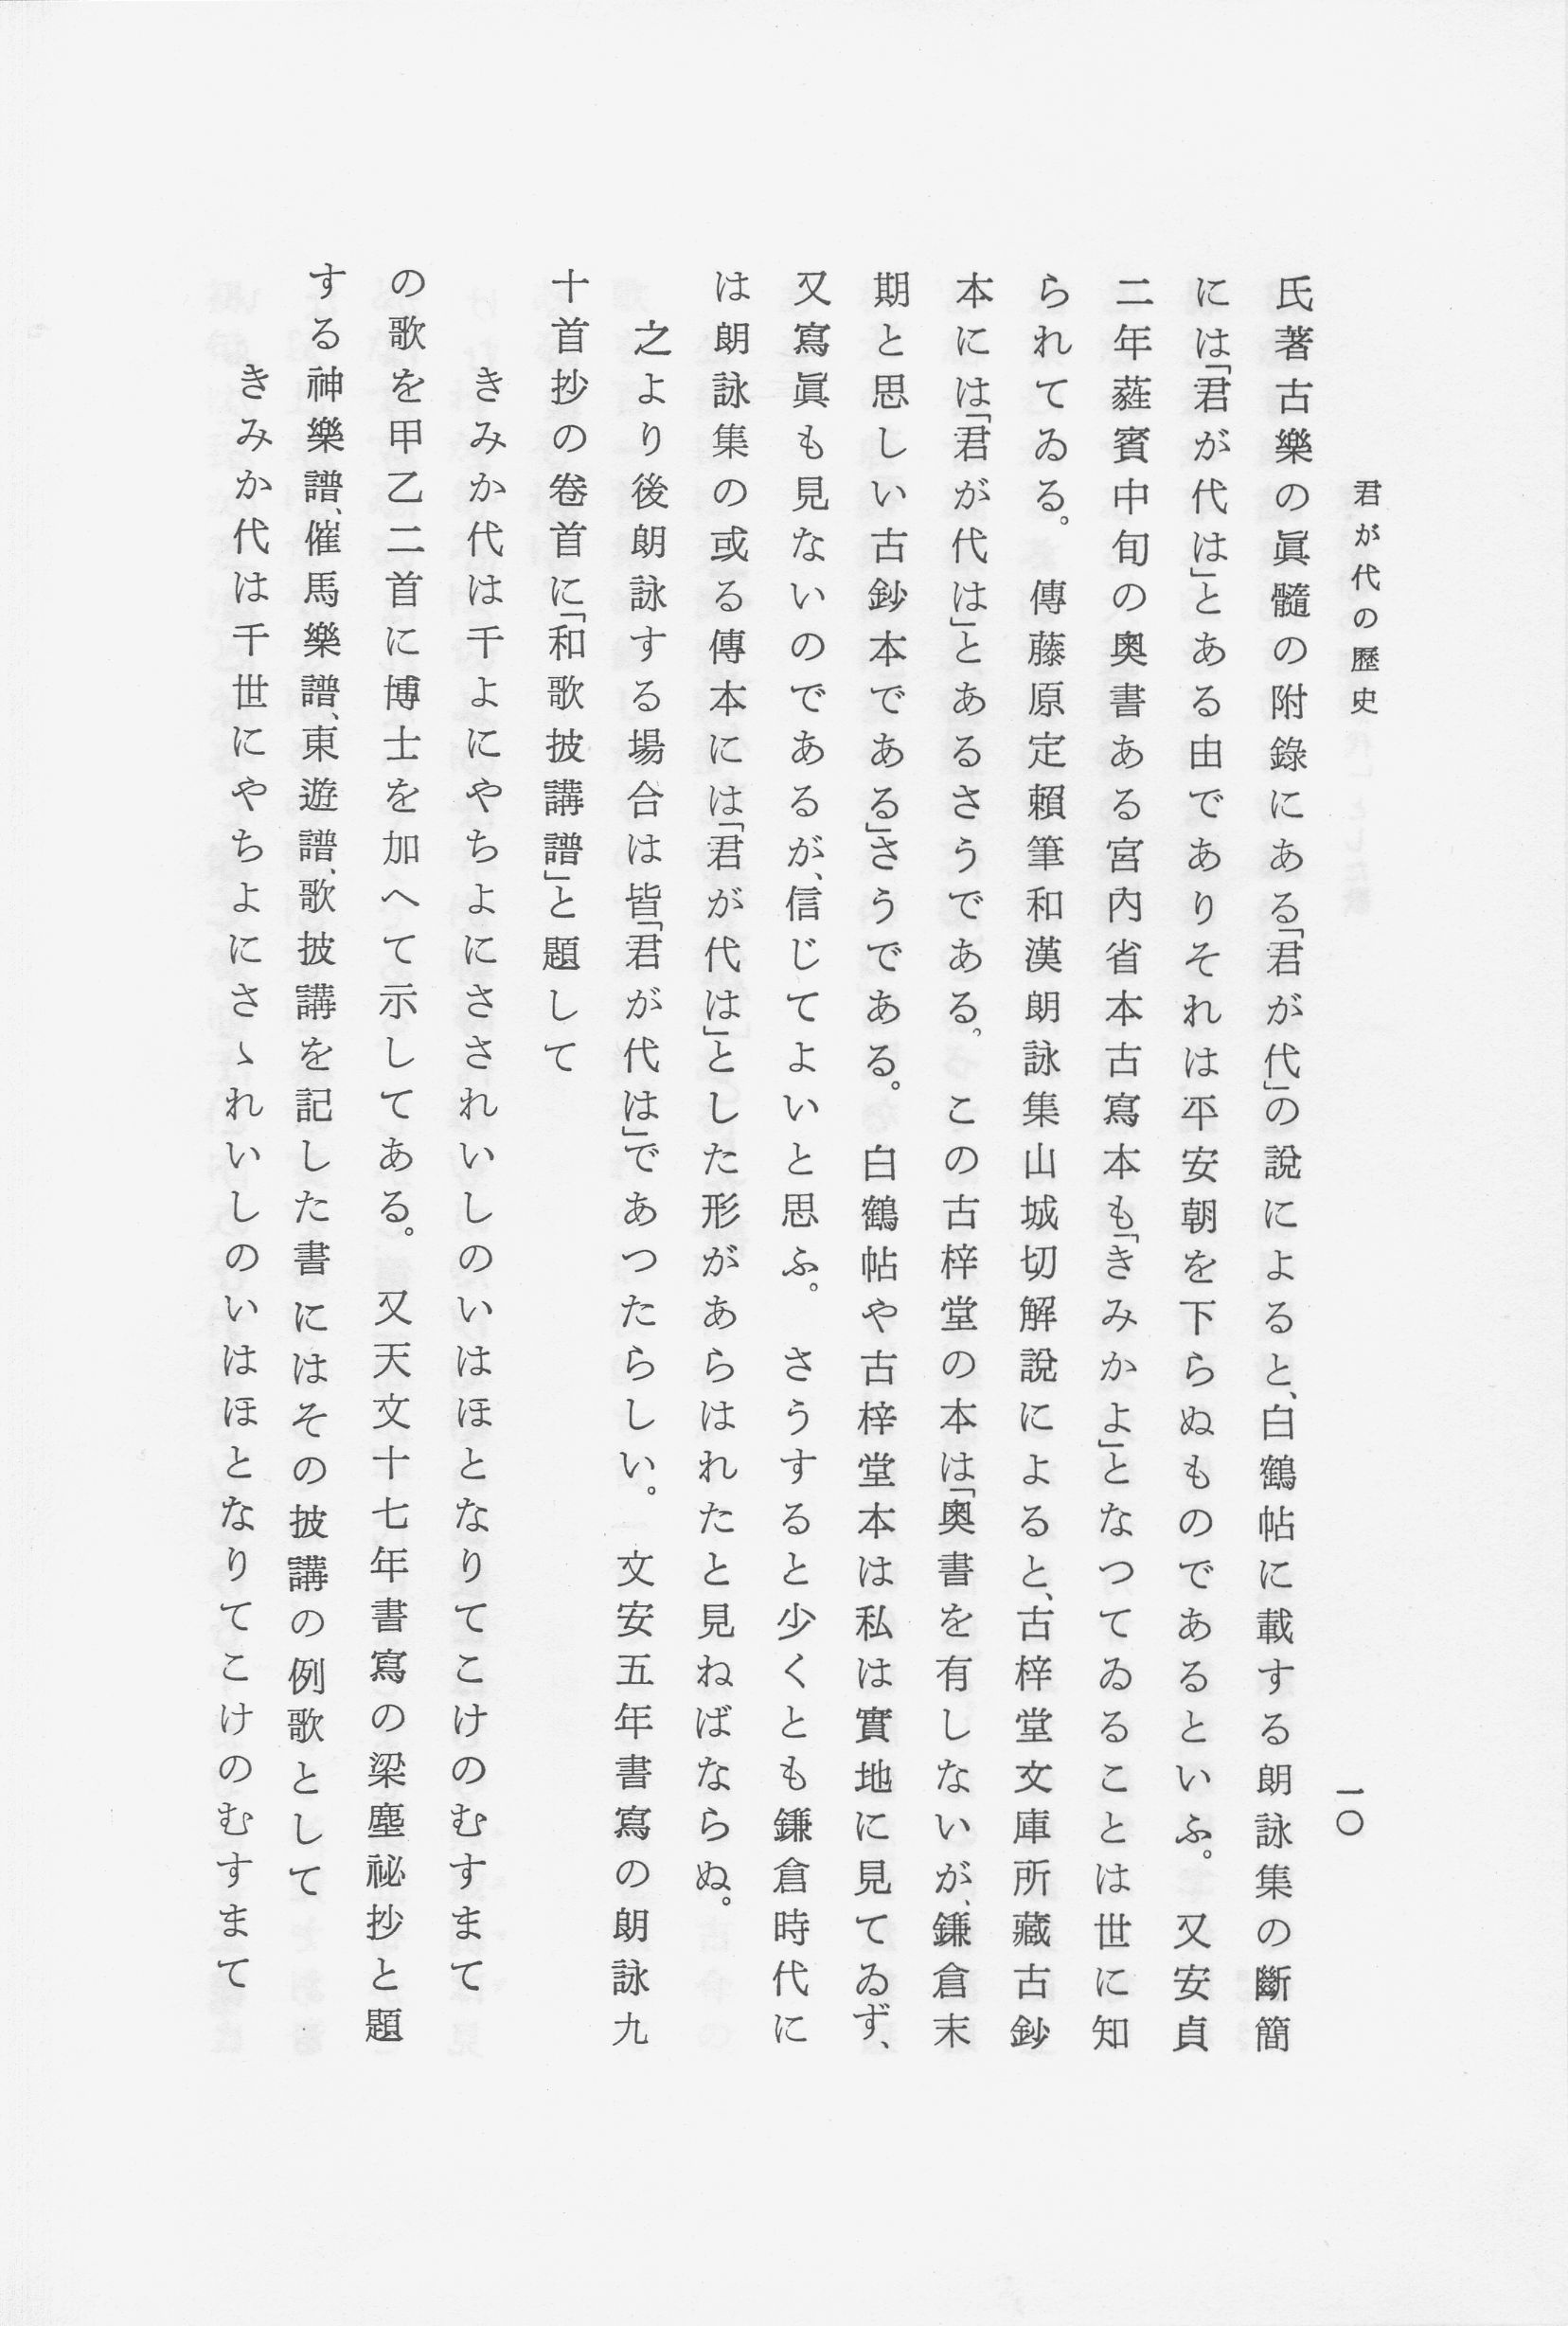 君が代の歴史
一〇
氏著古樂の眞髓の附錄にある「君が代」の說によると、白鶴帖に載する朗詠集の斷簡
には「君が代は」とある由でありそれは平安朝を下らぬものであるといふ。又安貞
二年蕤賓中旬の奧書ある宮內省本古寫本も「きみかよ」となつてゐることは世に知
られてゐる。傳藤原定賴筆和漢朗詠集山城切解說によると、古梓堂文庫所藏古鈔
本には「君が代は」とあるさうである。この古梓堂の本は「奧書を有しないが、鎌倉末
期と思しい古鈔本である」さうである。白鶴帖や古梓堂本は私は實地に見てゐず、
又寫眞も見ないのであるが、信じてよいと思ふ。さうすると少くとも鎌倉時代に
は朗詠集の或る傳本には「君が代は」とした形があらはれたと見ねばならぬ。
之より後朗詠する場合は皆「君が代は」であつたらしい。文安五年書寫の朗詠九
十首抄の卷首に「和歌披講譜」と題して
きみか代は千よにやちよにさされいしのいはほとなりてこけのむすまて
の歌を甲乙二首に博士を加へて示してある。又天文十七年書寫の梁塵祕抄と題
する神樂譜、催馬樂譜、東遊譜、歌披講を記した書にはその披講の例歌として
きみか代は千世にやちよにさゝれいしのいはほとなりてこけのむすまて